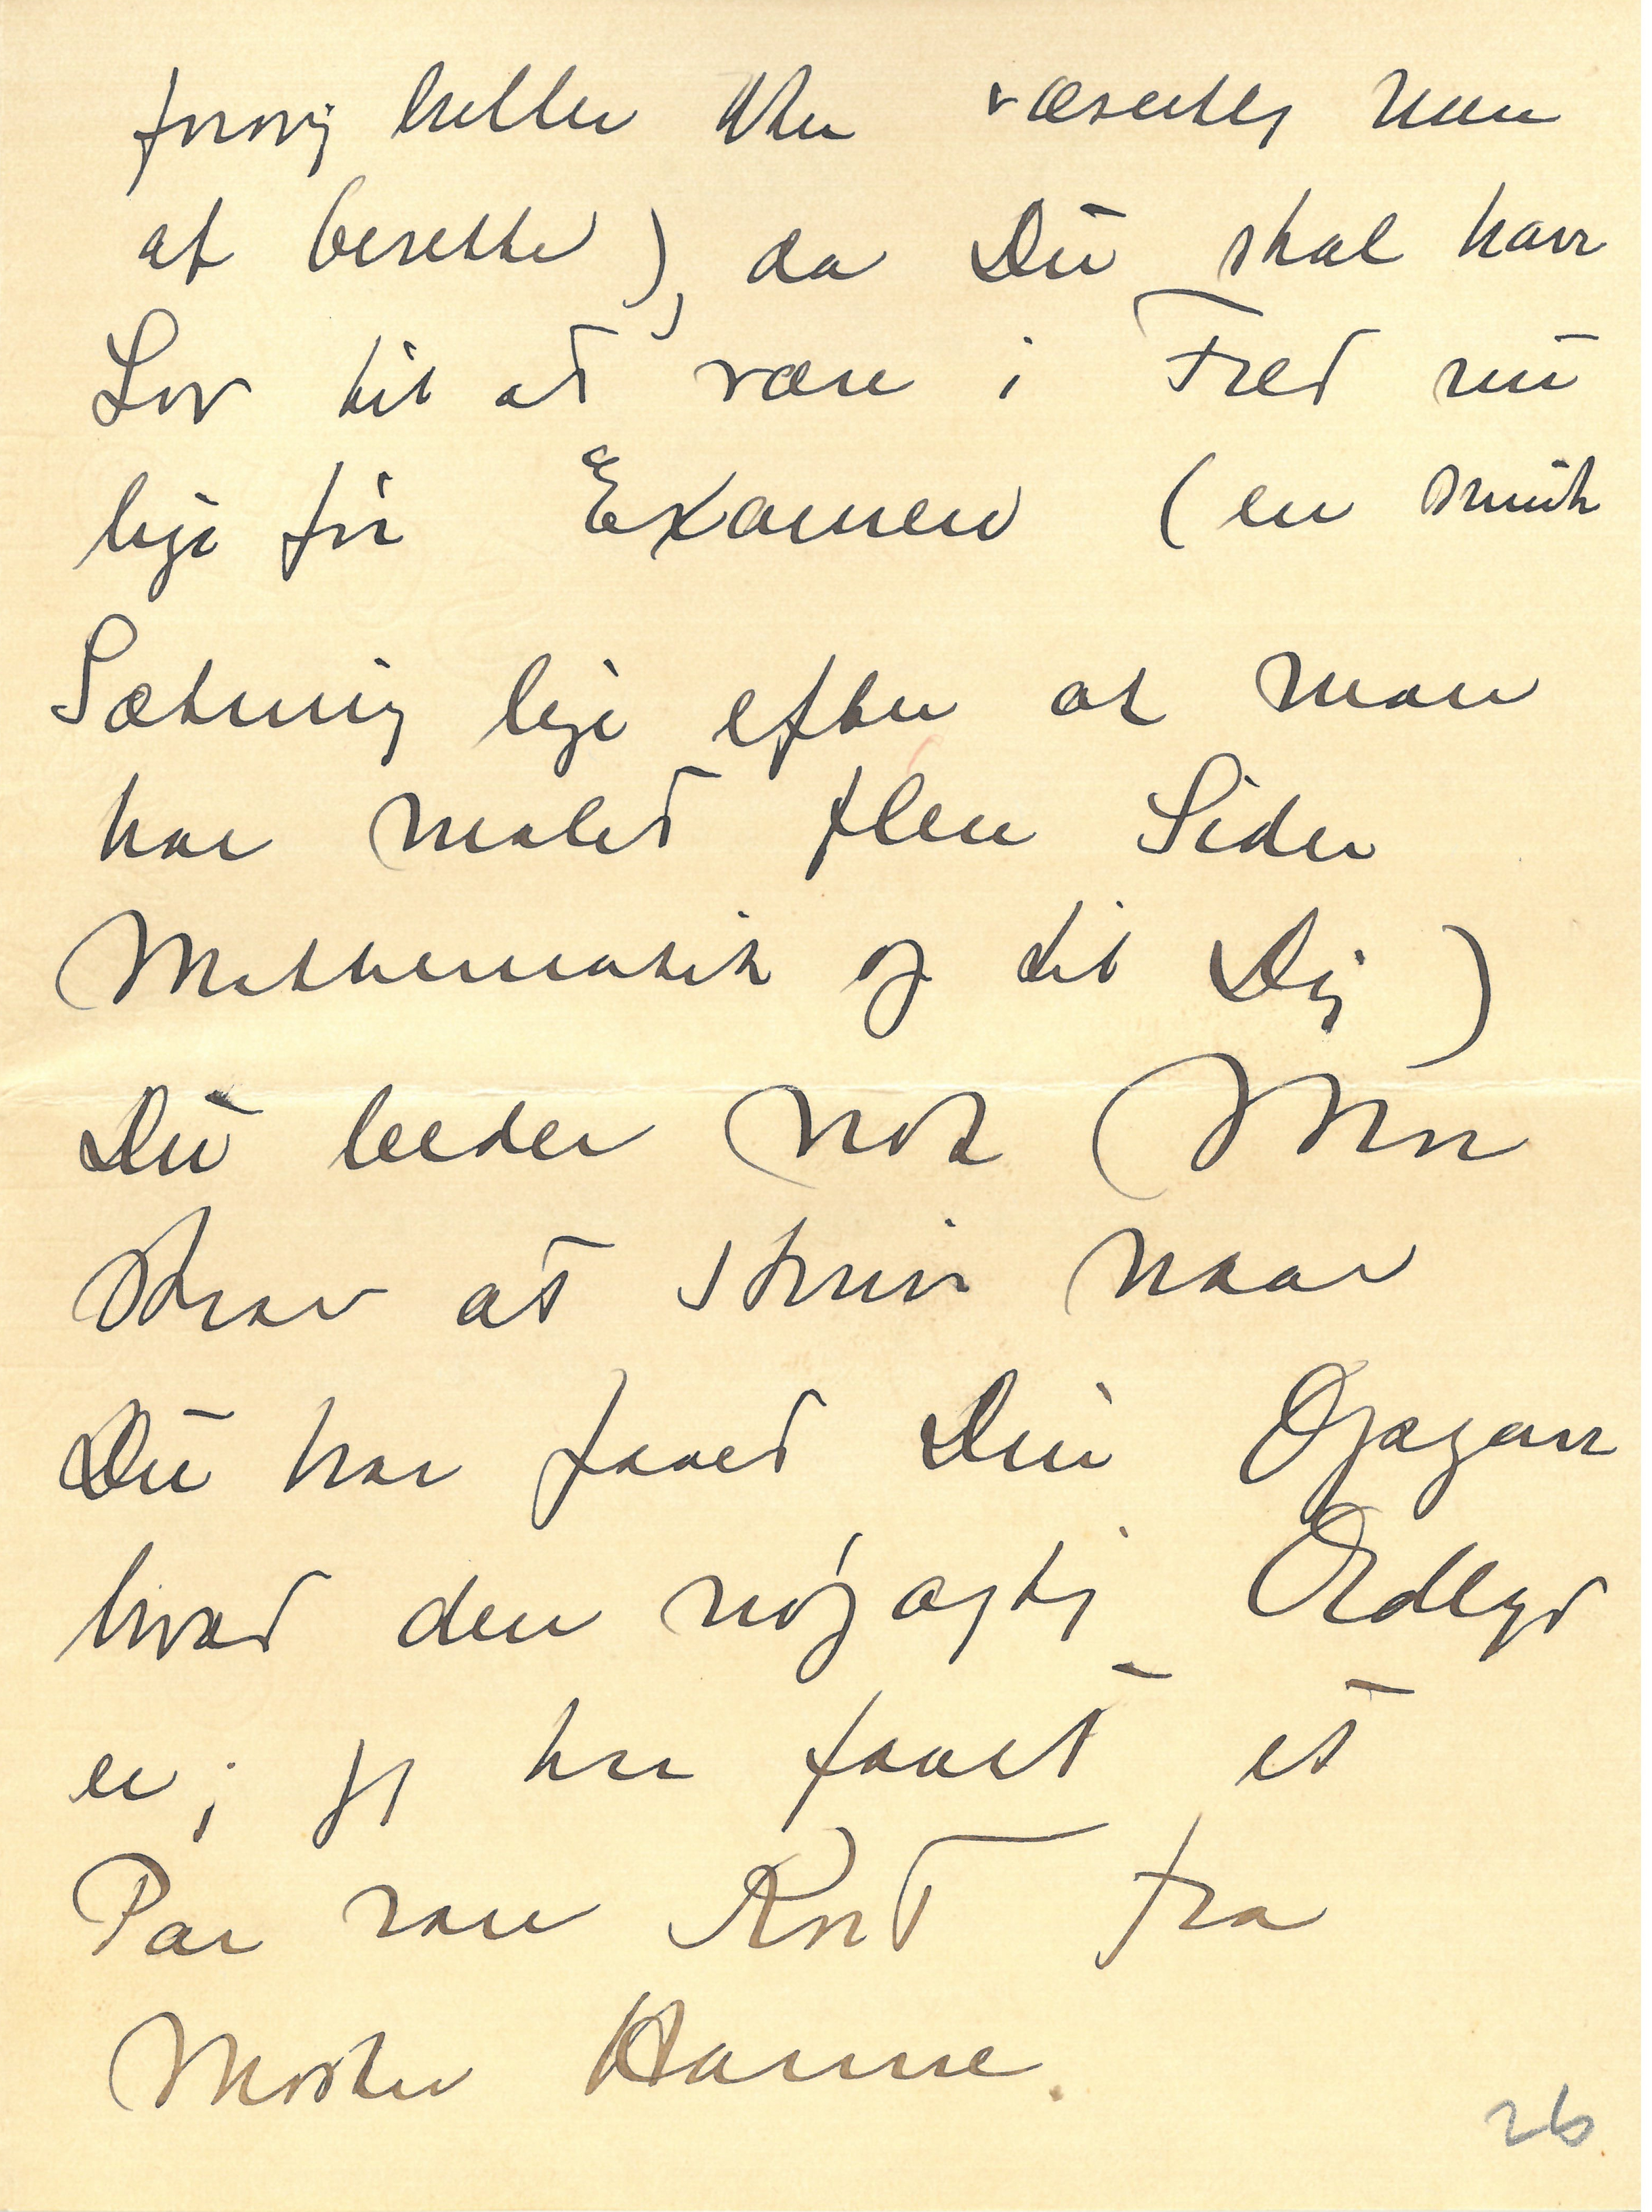 forøvrig heller ikke væsentlig mere
at berette), da Du skal have
Lov til at være i Fred nu
lige før Examen (en smuk
Sætning lige efter at man
har malet flere Sider
Mathematik og til Dig)
Du beder nok Mor
straks at skrive naar
Du har faaet Din Opgave
hvad den nøjagtige Ordlyd
er; jeg har faaet et
Par rare Kort fra
Moster Hanne.
26